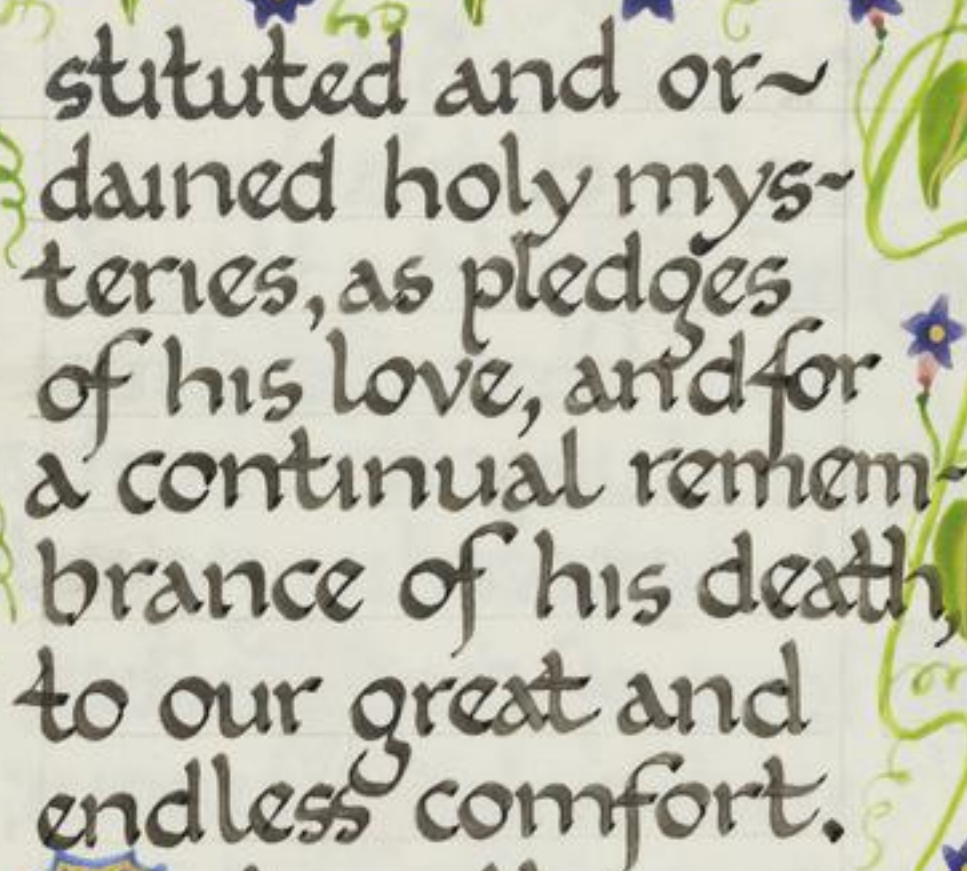 stituted and or~
dained holy mys-
teries, as pledges
of his love, and for
a continual remem-
brance of his death,
to our great and
endless comfort.